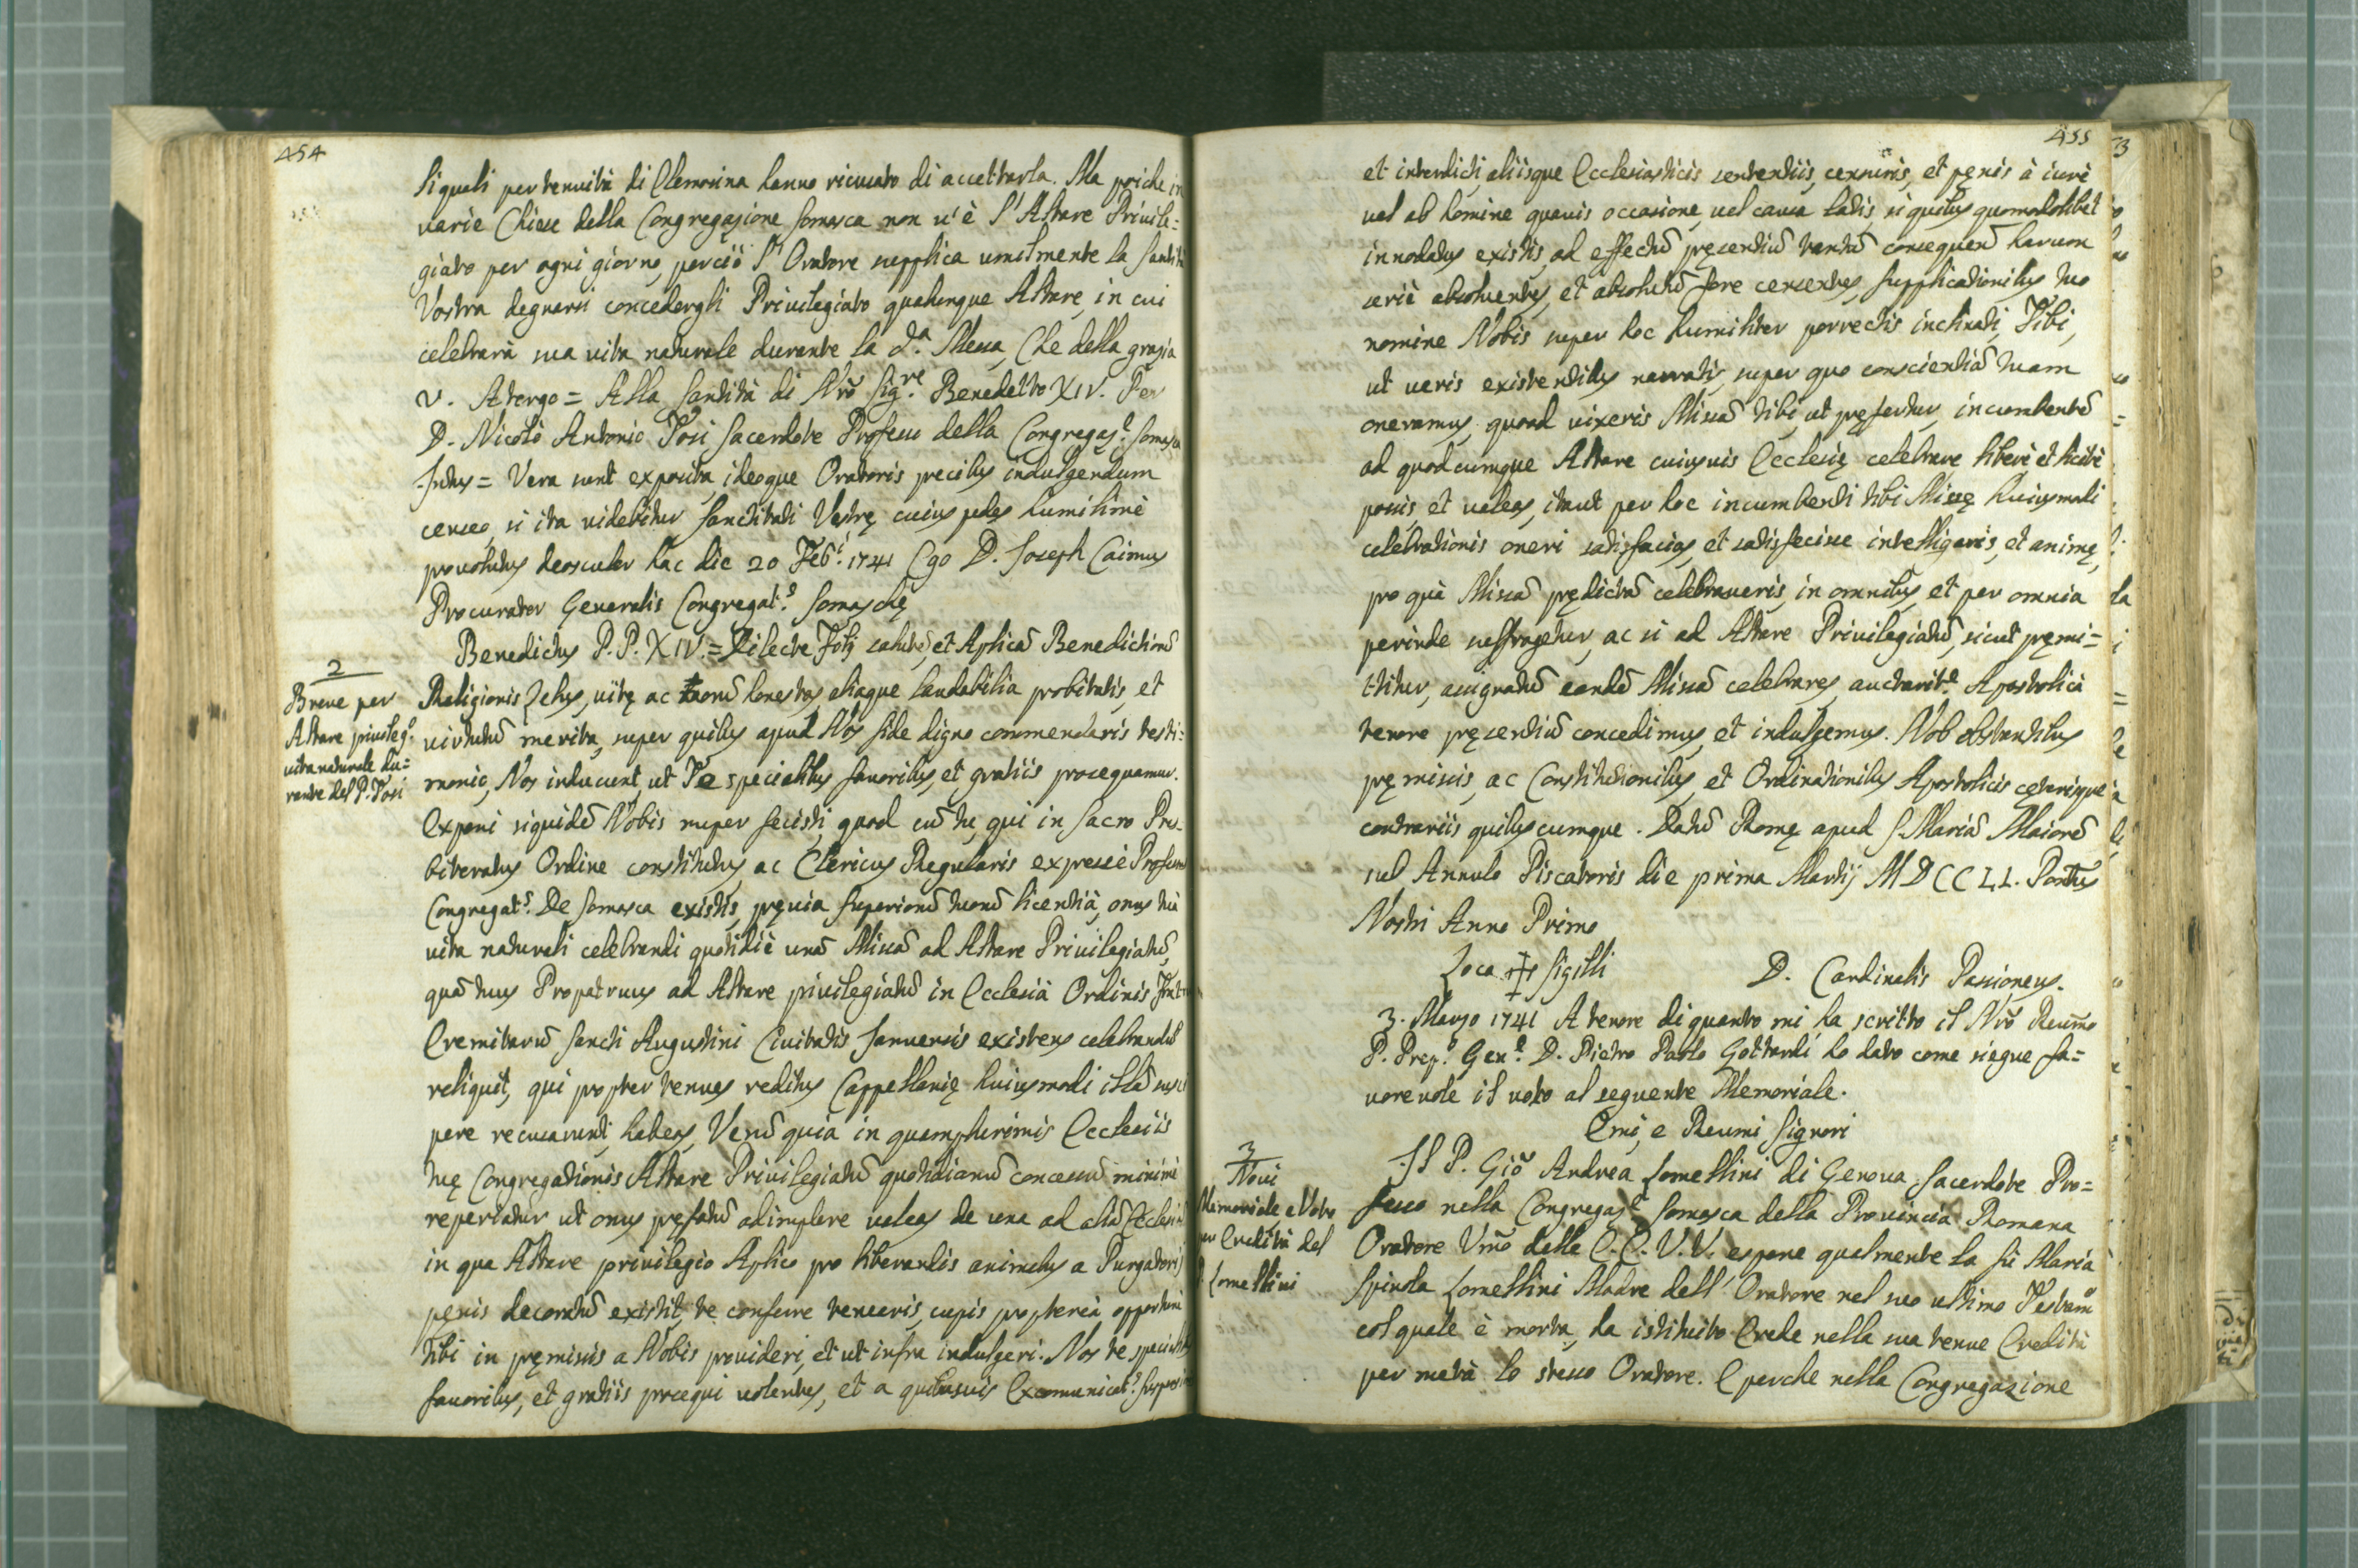 454
li quali per tenuità di Elemosina hanno ricusato di accettarla. Ma poiche in
varie Chiese della Congregazione Somasca non u'è l'Altare Priuile=
giato per ogni giorno, perciò l'Oratore supplica umilmente la Santità
Vostra degnarsi concedergli Priuilegiato qualunque Altare, in cui
celebrarà sua uita naturale durante la d.ª Messa, Che della grazia
V. Atergo = Alla Santità di Nrõ Sig.re Benedetto XIV. Per
D. Nicolò Antonio Tosi Sacerdote Professo della Congregaz.e Somasca
Intus = Vera sunt exposita, ideoque Oratoris precibus indulgendum
censeo, si ita uidebitur Sanctitati Vestrę cuius pedes humilimè
prouolutus deosculor hac die 20 Feb.i 1741 Ego D. Joseph Caimus
Procurator Generalis Congregat.s Somaschę
2
Breue per
Altare priuileg.o
uita naturale du=
rante del P. Tosi
Benedictus P.P. XIV. = Dilecte Filij salutē, et Aplicā Benedictionē
Religionis Zelus, uitę ac morū honestas, aliaque laudabilia probitatis, et
uirtutū merita, super quibus apud Nos fide digno commendaris testi=
monio, Nos inducunt, ut Te specialibus fauoribus, et gratiis prosequamur.
Exponi siquidē Nobis nuper fecisti, quod cū tu, qui in Sacro Pres=
biteratus Ordine constitutus ac Clericus Regularis expressè Professus
Congregat.s De Somasca existis, pręuia Superiorū tuorū licentià, onus tuà
uita naturali celebrandi quotidiè unā Missā ad Altare Priuilegiatū,
quā tuus Propatruus ad Altare priuilegiatū in Ecclesià Ordinis Fratrum
Eremitarū Sancti Augustini Ciuitatis Januensis existens celebrandā
reliquit, qui propter tenues reditus Cappellanię huiusmodi illā susci
pere recusarunt, habeas, Verū quia in quamplurimis Ecclesiis
tuę Congregationis Altare Priuilegiatū quotidianū concessū minimè
reperiatur ut onus pręfatū adimplere ualeas de una ad aliā Ecclesiā
in qua Altare priuilegio Aplico pro liberandis animabus a Purgatorij
pęnis decoratū existit, te conferre tenearis, cupis propterea, opportunè
tibi in pręmissis a Nobis prouideri, et ut infra indulgeri. Nos te specialibus
fauoribus, et gratiis prosequi uolentes, et a quibusuis Excomunicat.s Suspensionis
455
et interdicti, aliisque Ecclesiasticis sententiis, censuris, et pęnis à iure
uel ab homine quauis occasione, uel causa latis, si quibus quomodolibet
innodatus existis, ad effectū pręsentiū tantū consequend harum
serie absoluentes, et absolutū fore censentes, supplicationibus tuo
nomine Nobis super hoc humiliter porrectis inclinati, Tibi,
ut ueris existentibus narratis, super quo conscientiā tuam
oneramus, quoad uixeris Missā tibi, ut pręfertur, incumbentē
ad quodcumque Altare cuiusuis Ecclesię celebrare liberè et licitè
possis, et ualeas, itaut per hoc incumbenti tibi Missę huiusmodi
celebrationis oneri satisfacias, et satisfecisse intelligaris, et animę,
pro quà Missā prędictā celebraueris, in omnibus et per omnia
perinde suffragetur, ac si ad Altare Priuilegiatū, sicut pręmi=
ttitur, assignatū eandē Missā celebrares, auctorit.e Apostolicà
tenore pręsentiū concedimus, et indulgemus. Nob obstantibus
pręmissis, ac Constitutionibus, et Ordinationibus Apostolicis cęterisque
contrariis quibuscumque. Datū Romę apud S. Mariā Maiorē
sub Annulo Piscatoris die prima Martij MDCCLI. Pontus
Nostri Anno Primo
Loca ✝ Sigilli D. Cardinalis Passioneus.
3. Marzo 1741 A tenore di quanto mi ha scritto il Nrõ Reumo
P. Prep.o Gen.e D. Pietro Paolo Gottardi hò dato come siegue fa=
uoreuole il uoto al seguente Memoriale.
Emi, e Reumi Signori
3
Noui
Memoriale e Voto
per Eredità del
P. Lomellini
Il P. Giõ Andrea Lomellini di Genoua, Sacerdote Pro=
fesso nella Congregaz.e Somasca della Prouincia Romana
Oratore Vmõ delle E.E. V.V. espone qualmente la fù Maria
Spinola Lomellini Madre dell'Oratore nel suo ultimo Testamo
col quale è morta, ha istituito Erede nella sua tenue Eredità
per metà lo stesso Oratore. E perche nella Congregazione